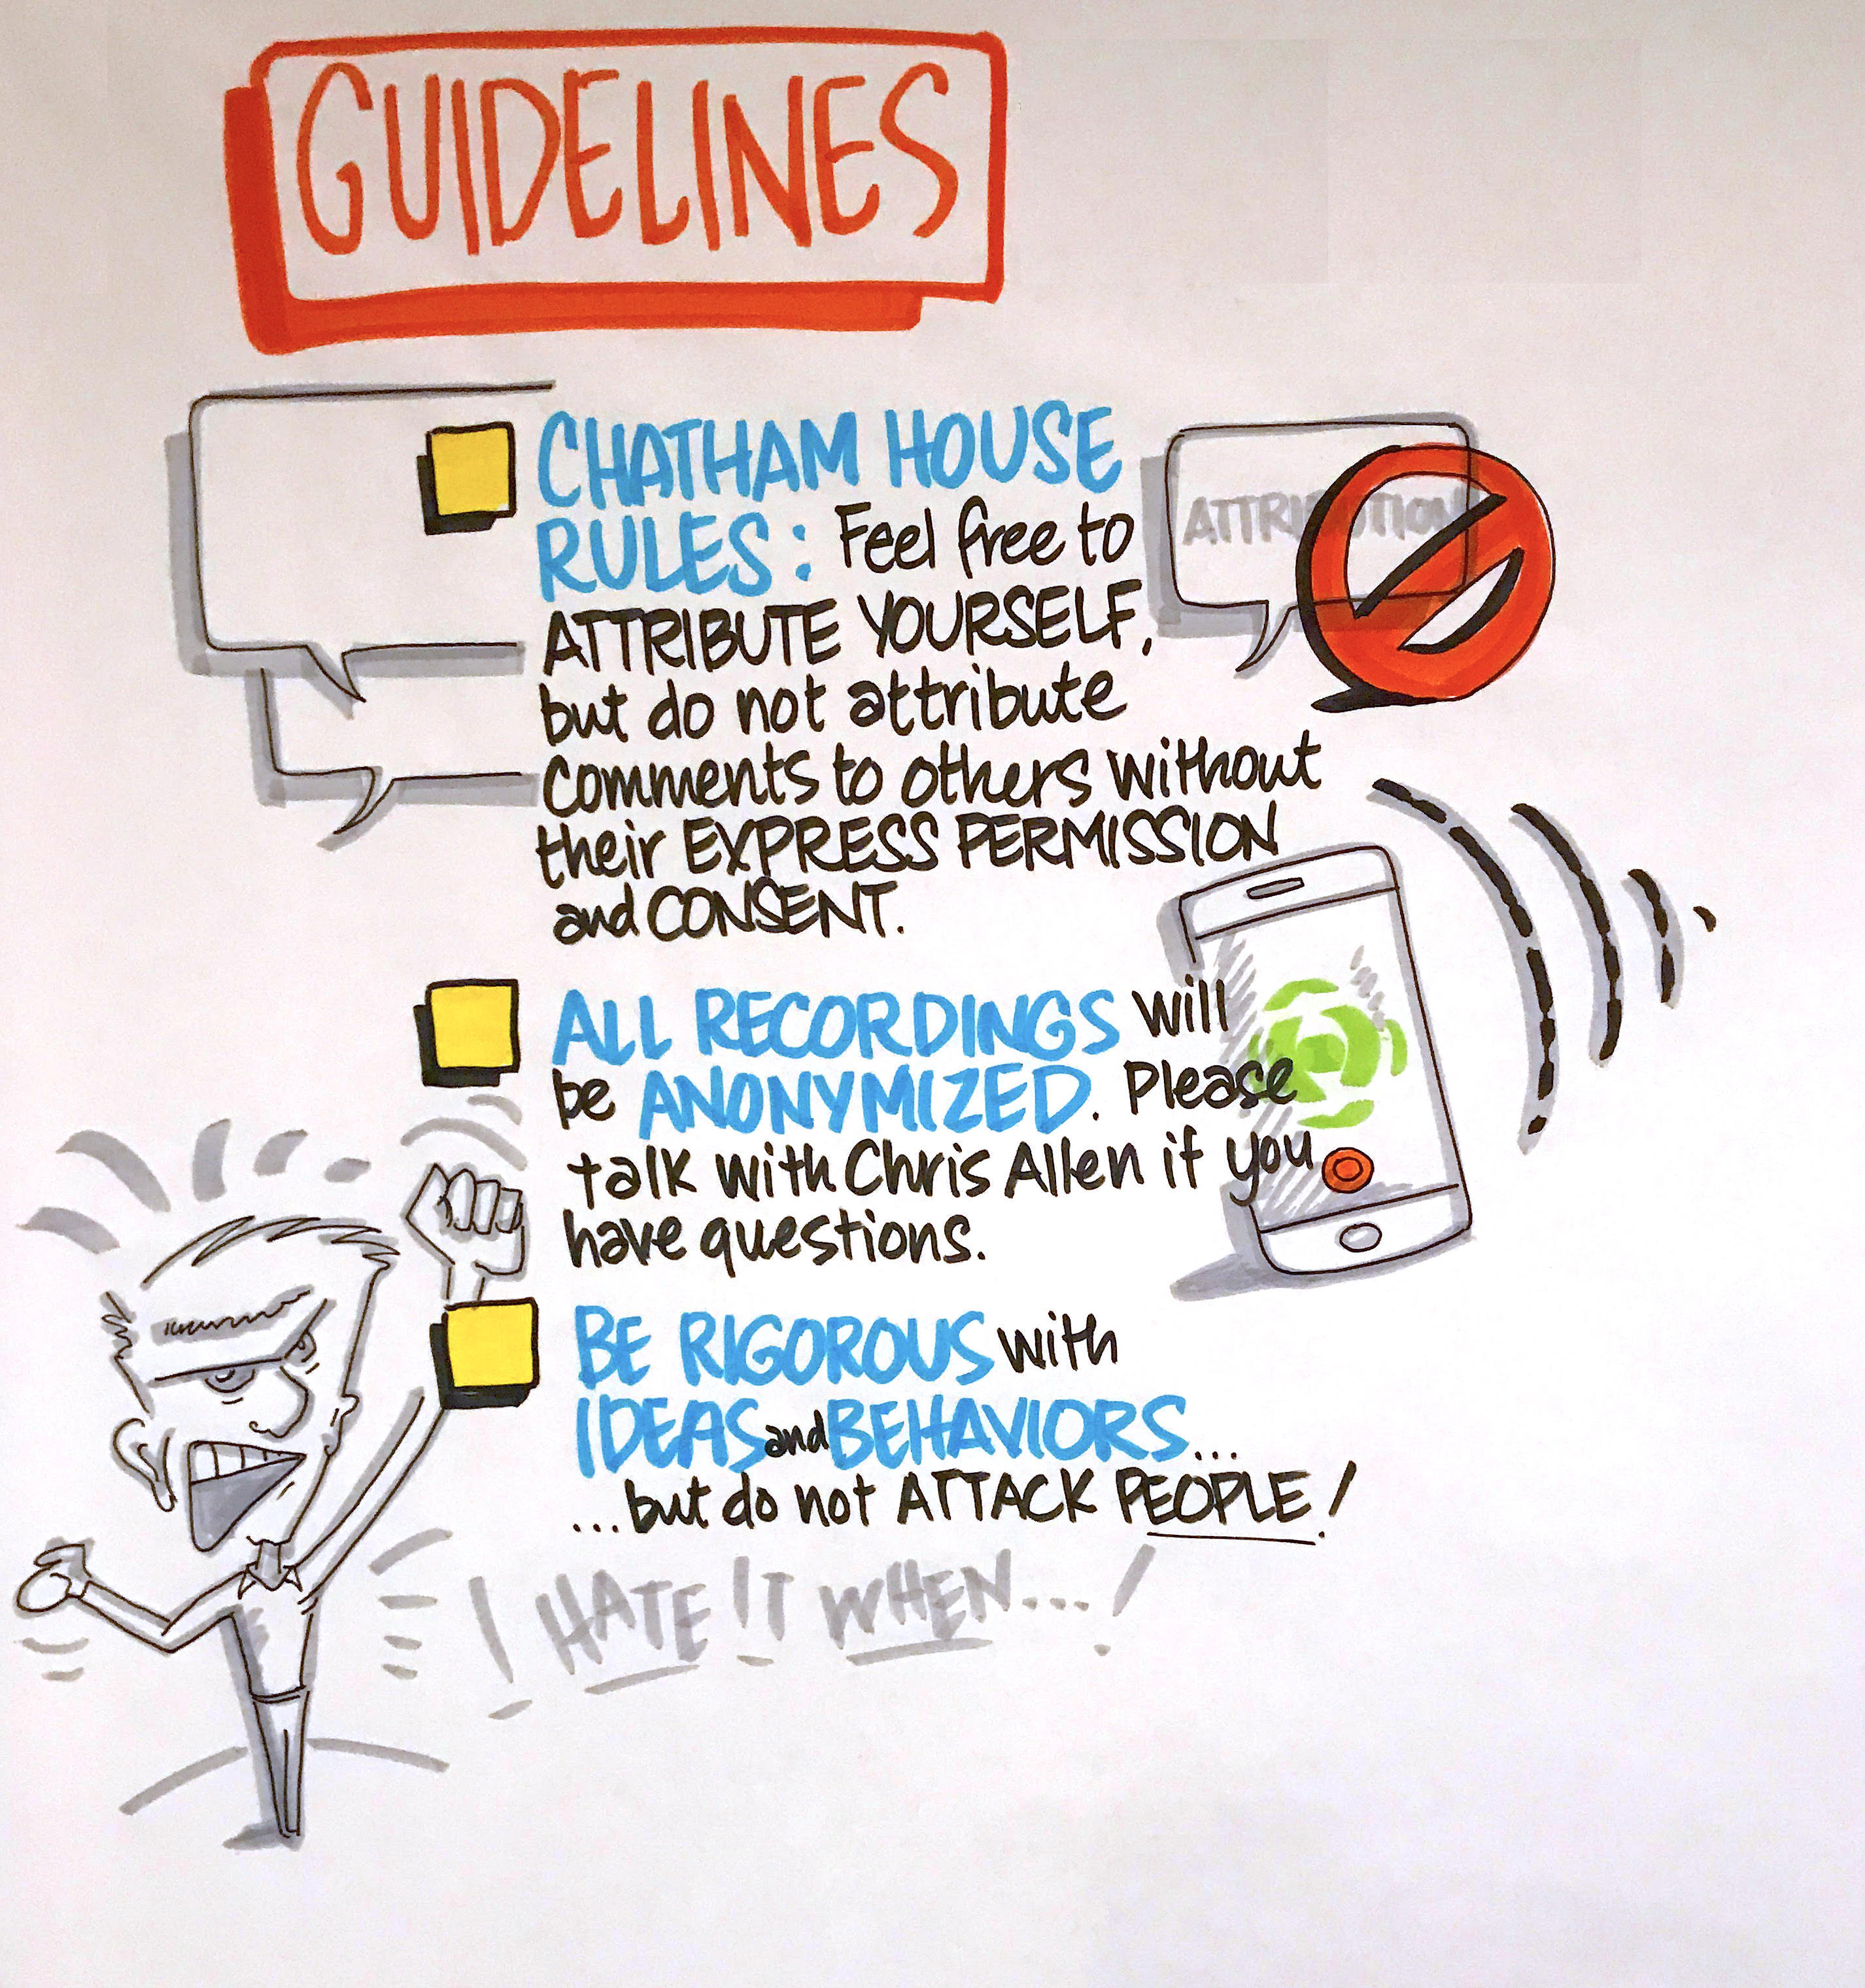 GUIDELINES
CHATHAM HOUSE
RULES: Feel free to
ATTRIBUTE YOURSELF,
but do not attribute
comments to others without
their EXPRESS PERMISSION
and CONSENT.
ATTRIBUTION
ALL RECORDINGS will
be ANONYMIZED. Please
talk with Chris Allen if you
have questions.
BE RIGOROUS with
IDEAS and BEHAVIORS...
...but do not ATTACK PEOPLE!
I HATE IT WHEN...!